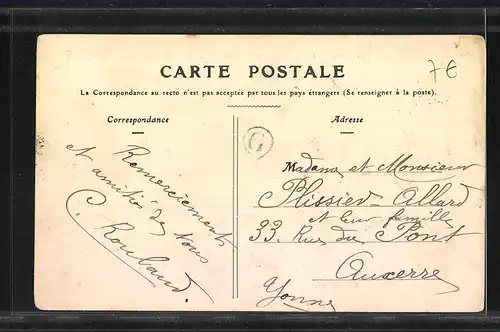 CARTE POSTALE
7€
La Correspondance au recto n'est pas acceptée par tous les pays étrangers (Se renseigner à la poste).
Correspondance
Remerciements
et amitiés de tous
C. Roubaud.
Adresse
G
Madame et Monsieur
Plissier-Allard
et leur famille
33. Rue du Pont
Auxerre
Yonne